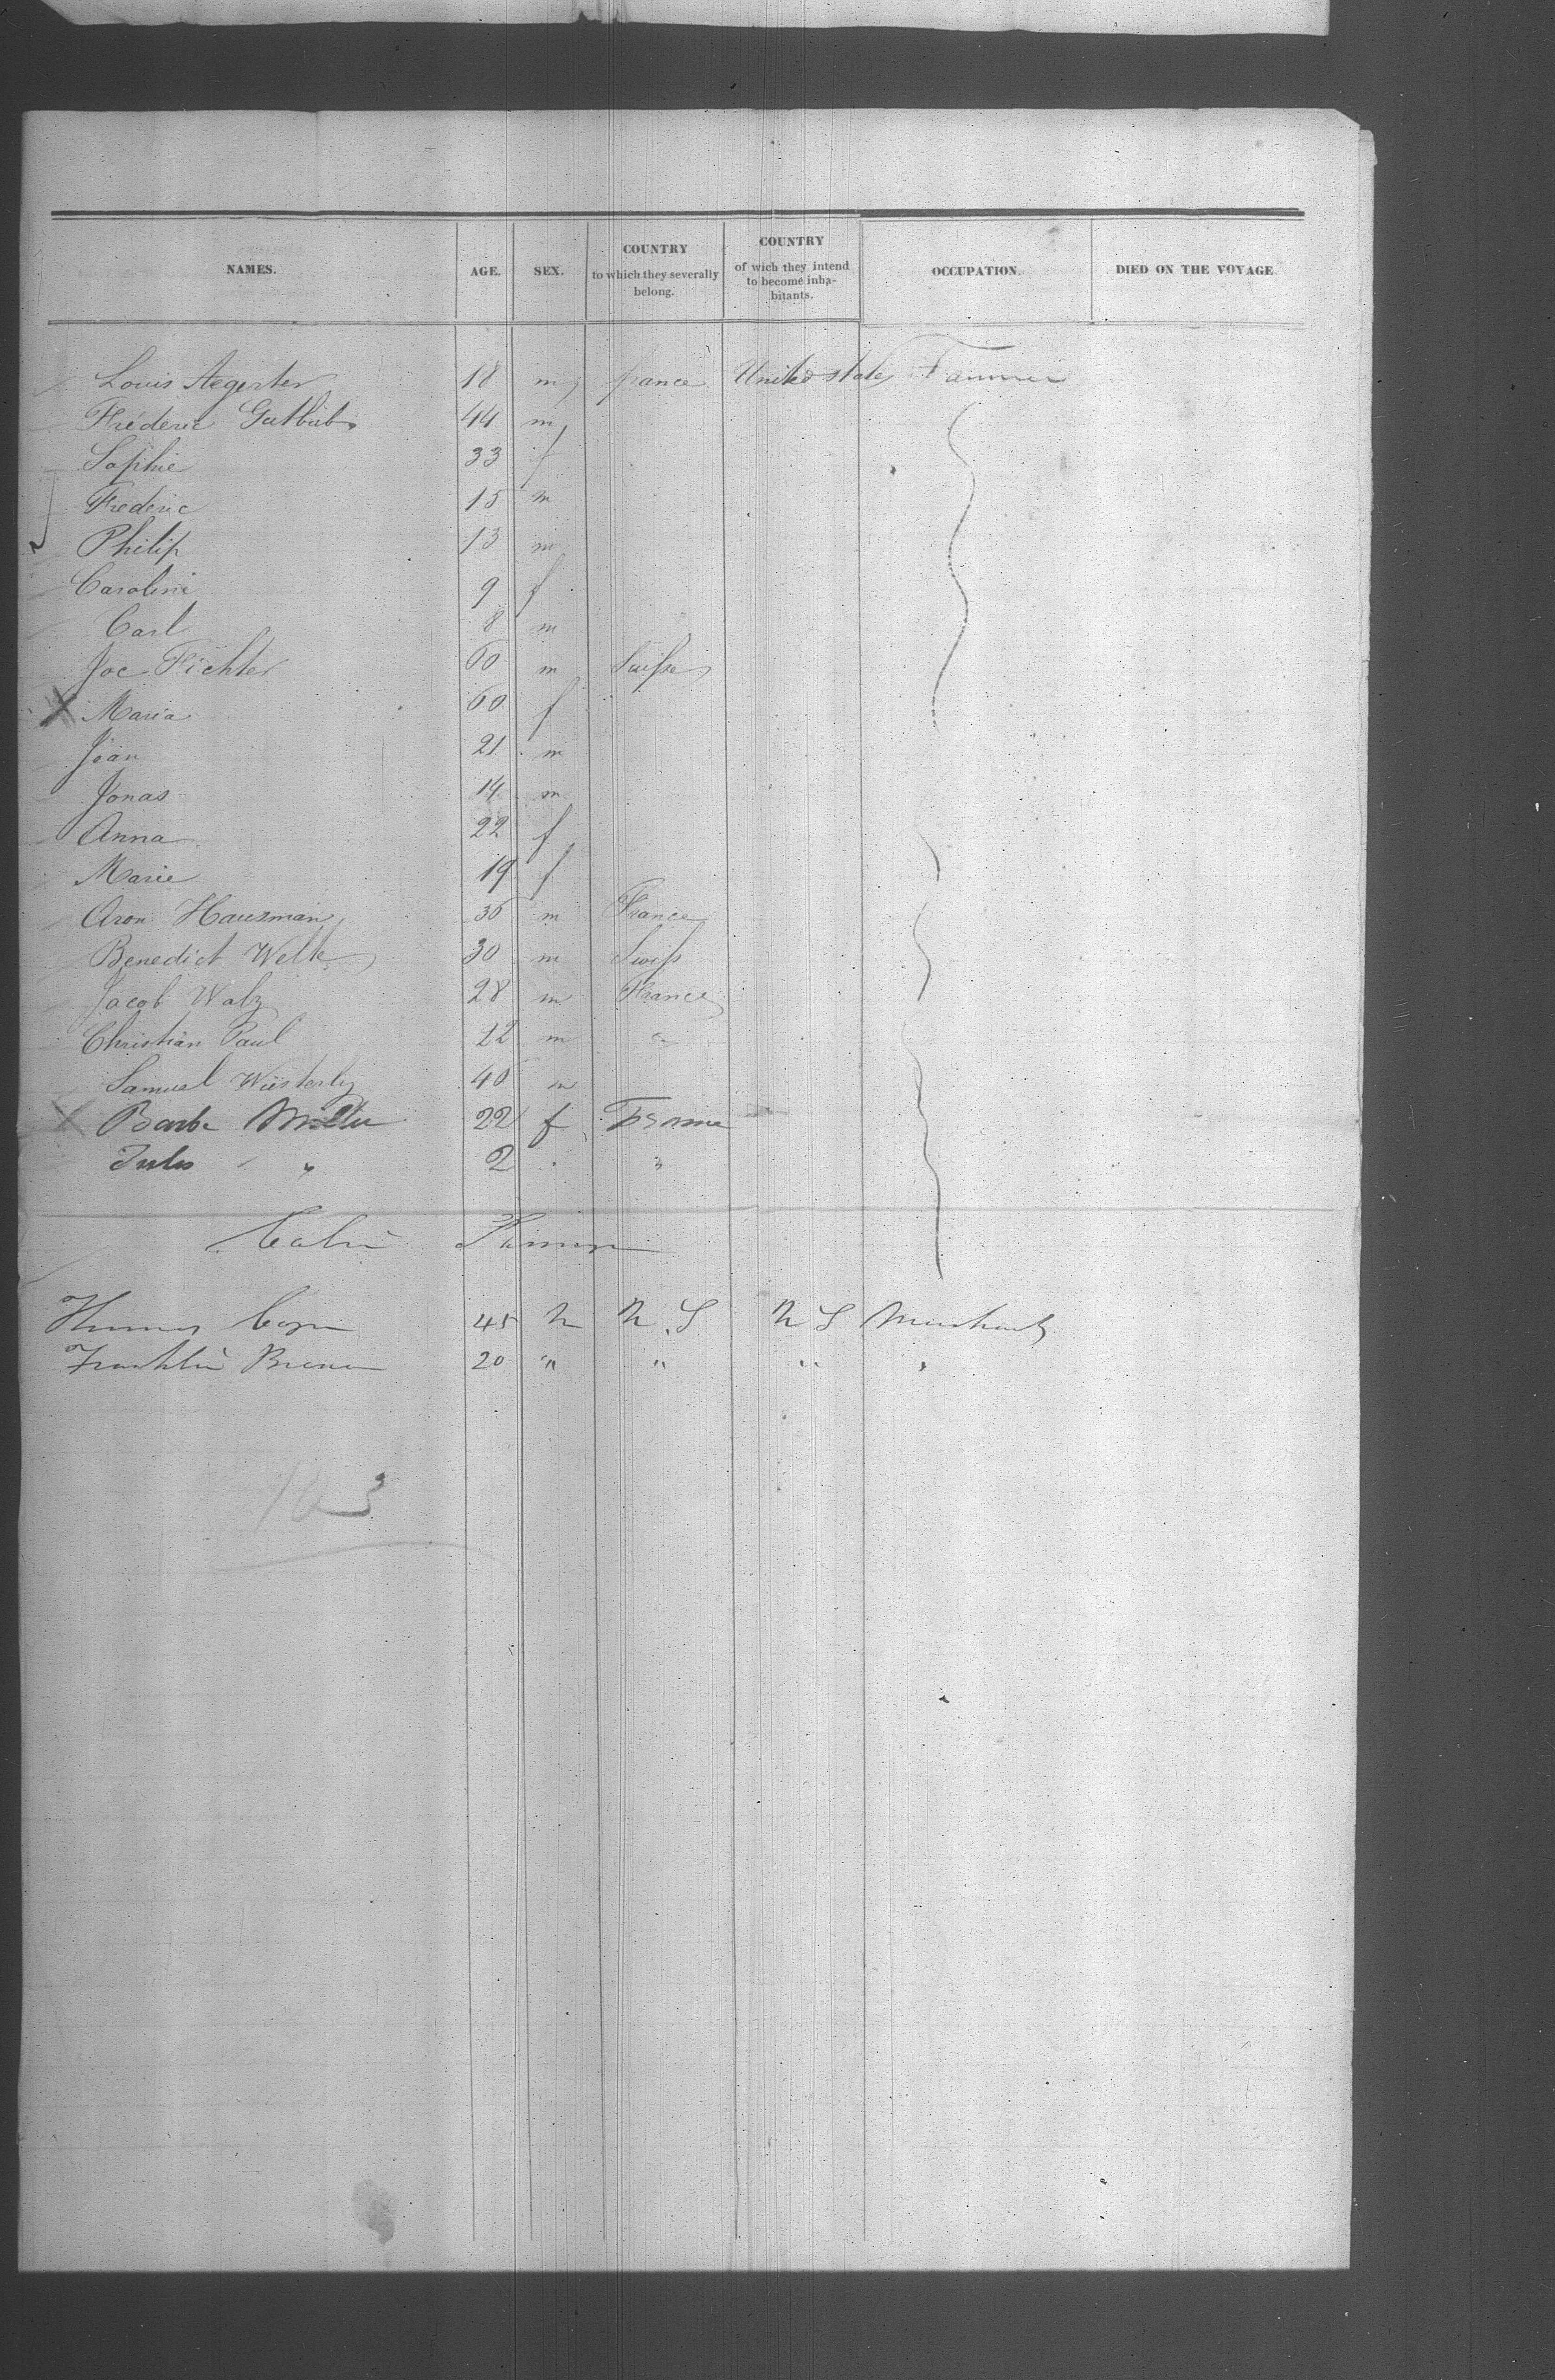 NAMES. AGE. SEX. COUNTRY to which they severally belong. COUNTRY of wich they intend to become inhabitants. OCCUPATION. DIED ON THE VOYAGE
Louis Aegerter 18 m france United states Farmer
Fréderic Gutbub 44 m
Sophie 33 f
Frederic 15 m
Philip 13 m
Carolini 9 f
Carl 8 m
Joc Fichter 60 m Suisse
X Maria 60 f
Jean 21 m
Jonas 14 m
Anna 22 f
Marie 19 f
Aron Hausman 36 m France
Benedict Welte 30 m Swiss
Jacob Walz 28 m France
Christian Paul 22 m "
Samuel Wüsterly 40 m
X Barbe Miller 22 f France
Jules " 2 "
Cabin
45 m U.S U S Merchant
Franklin 20 " " " "
103